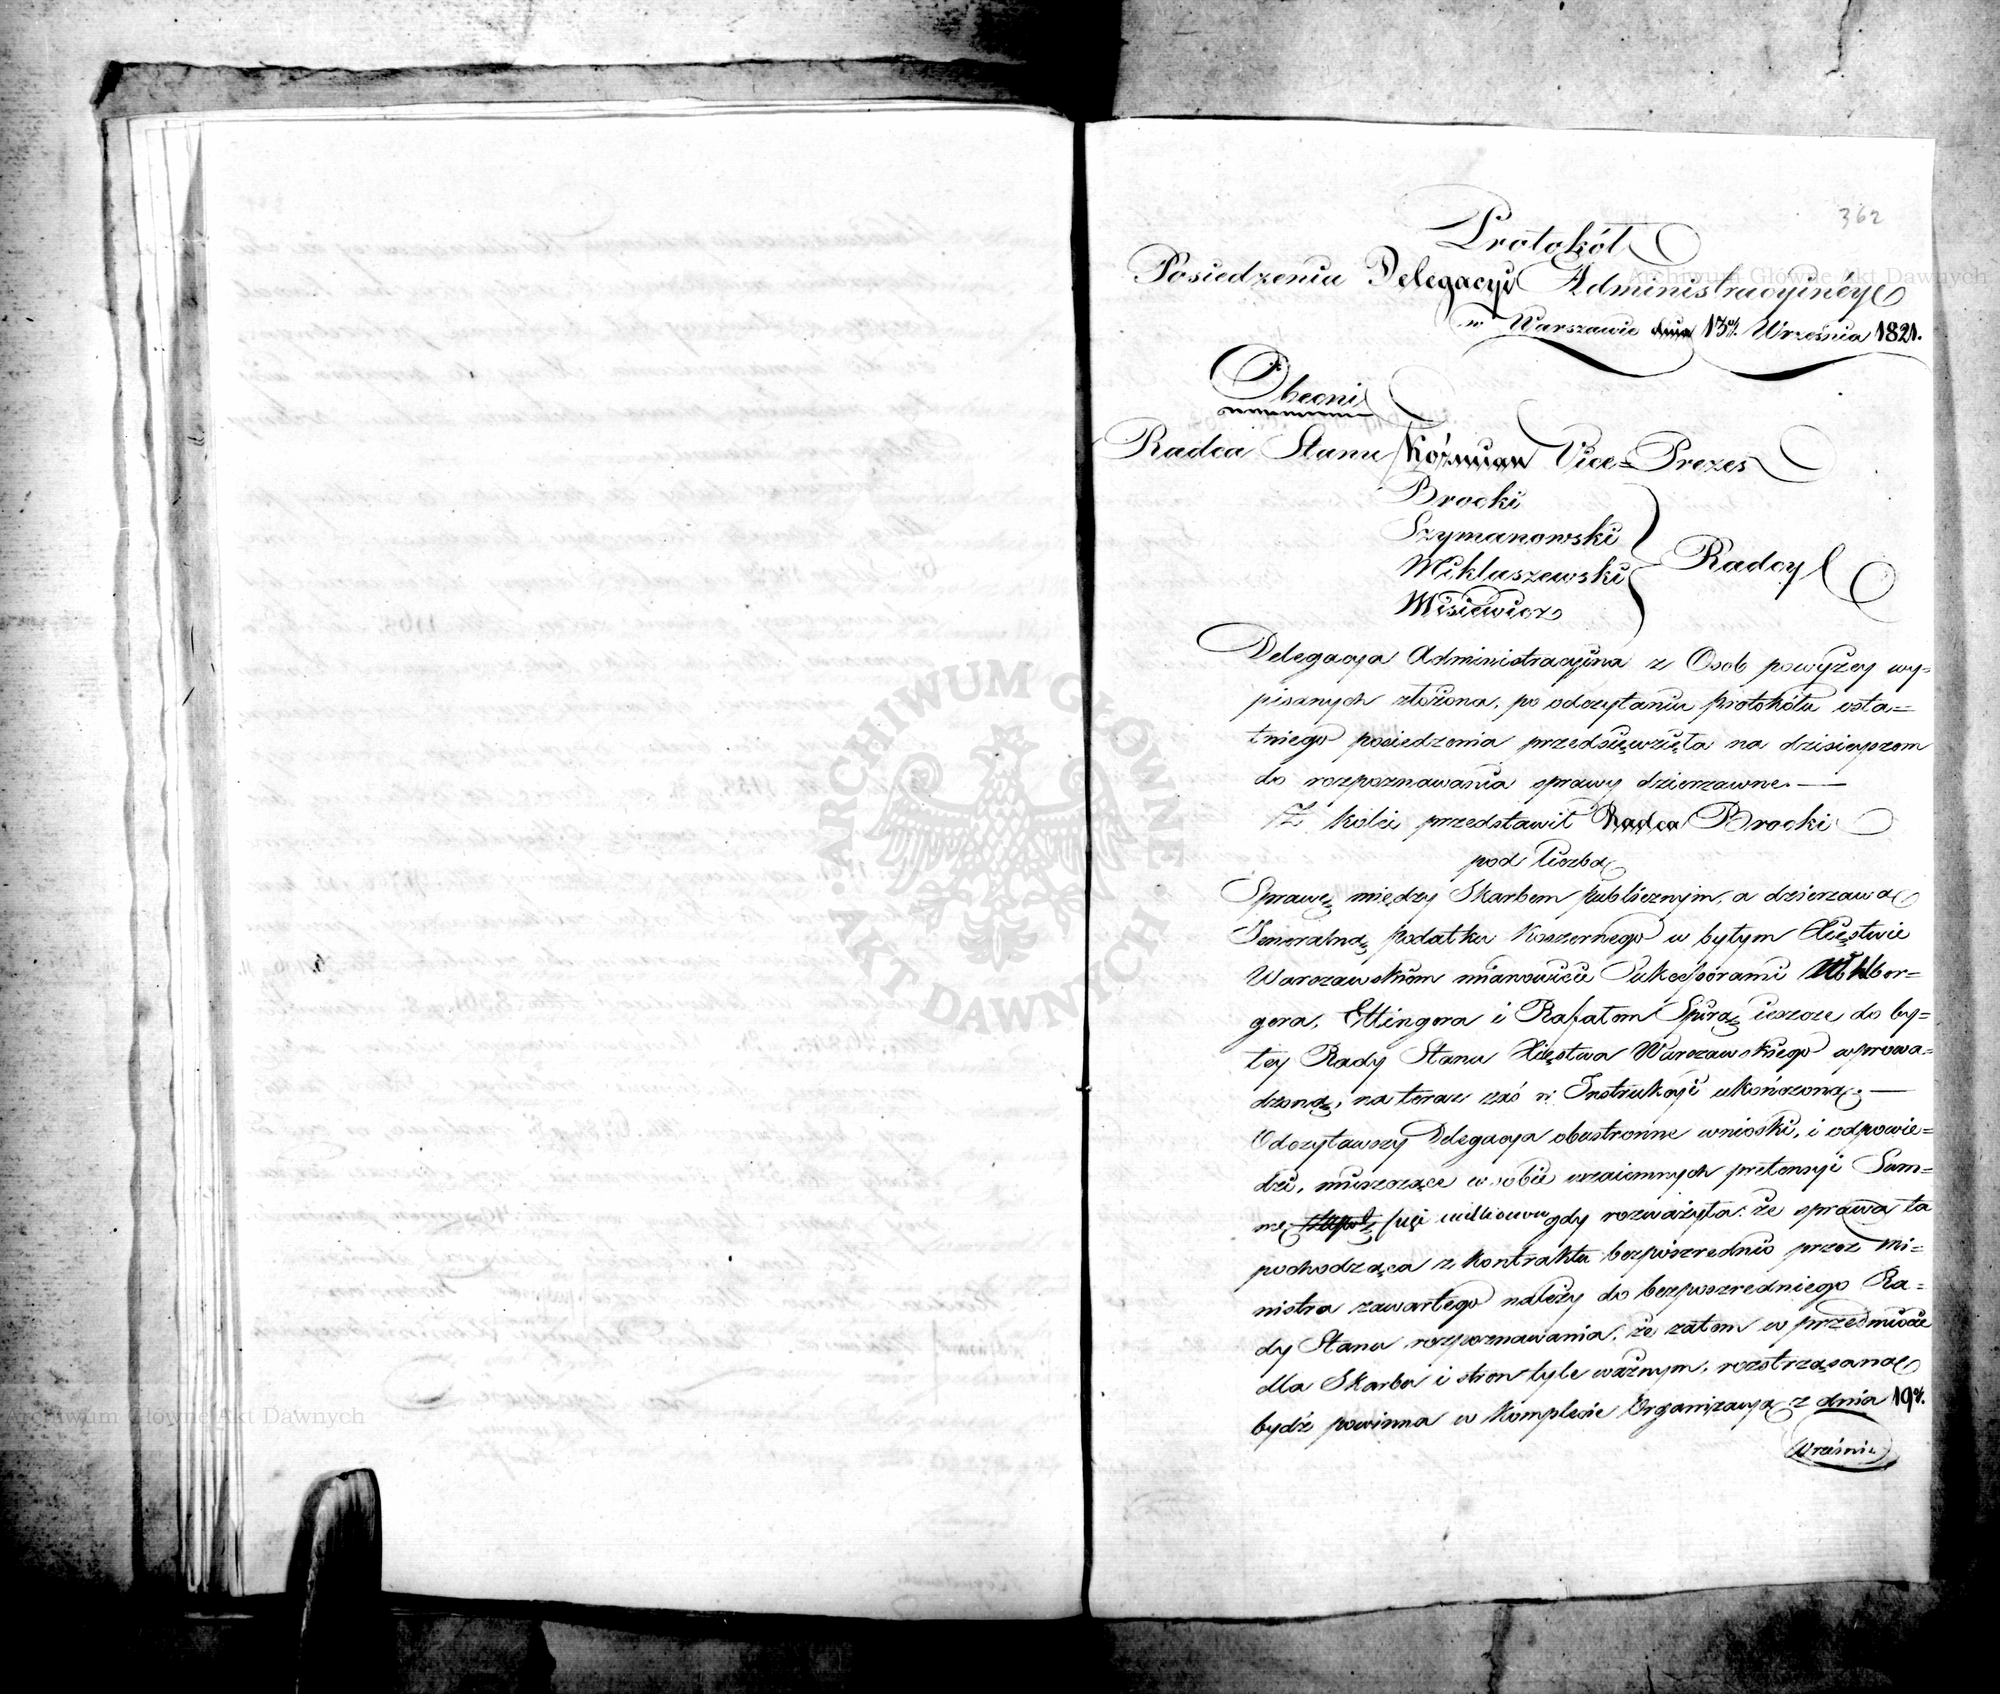 362
Protokół
Posiedzenia Delegacyi Administracyiney
w Warszawie dnia 13go Września 1821.
Obecni
Radca Stanu Koźmian Vice=Prezes
Brocki
Szymanowski
Miklaszewski
Misiewicz
Radcy
Delegacya Administracyina z Osob powyżey wy=
pisanych złożona, po odczytaniu protokółu osta=
tniego posiedzenia przedsięwzięła na dzisieyszem
do rozpoznawania sprawy dzierzawne. —
Z kolei przedstawił Radca Brocki
pod liczbą
Sprawę między Skarbem publicznym, a dzierzawą
Jeneralną podatku Koszernego w byłym Xięstwie
Warszawskim mianowicie Sukcessorami
gera, Ettingera i Rafałem Spirą ieszcze do by=
łey Rady Stanu Xięstwa Warszawskiego wprowa=
dzoną, na teraz zaś w Instrukcyi ukończoną. —
Odczytawszy Delegacya obustronne wnioski, i odpowie=
dzi, mieszczące w sobie wzaiemnych pretensyi Sum=
mę millionow gdy rozważyła: że sprawa ta
pochodząca z kontraktu bezpośrednio przez Mi=
nistra zawartego należy do bezpośredniego Ra=
dy Stanu rozpoznawania, że zatem w przedmiocie
dla Skarbu i stron tyle ważnym, roztrząsaną
bydź powinna w Komplecie Organizacyą z dnia 19go
Wrześnie
ARCHIWUM GŁÓWNE AKT DAWNYCH
Archiwum Główne Akt Dawnych
Archiwum Główne Akt Dawnych